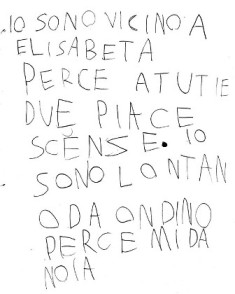 .IO SONO VICINO A
ELISABETA
PERCE A TUTI E
DUE PIACE
SCĔNSE. IO
SONO LONTAN
O DA ONDINO
PERCE MI DA
NOIA